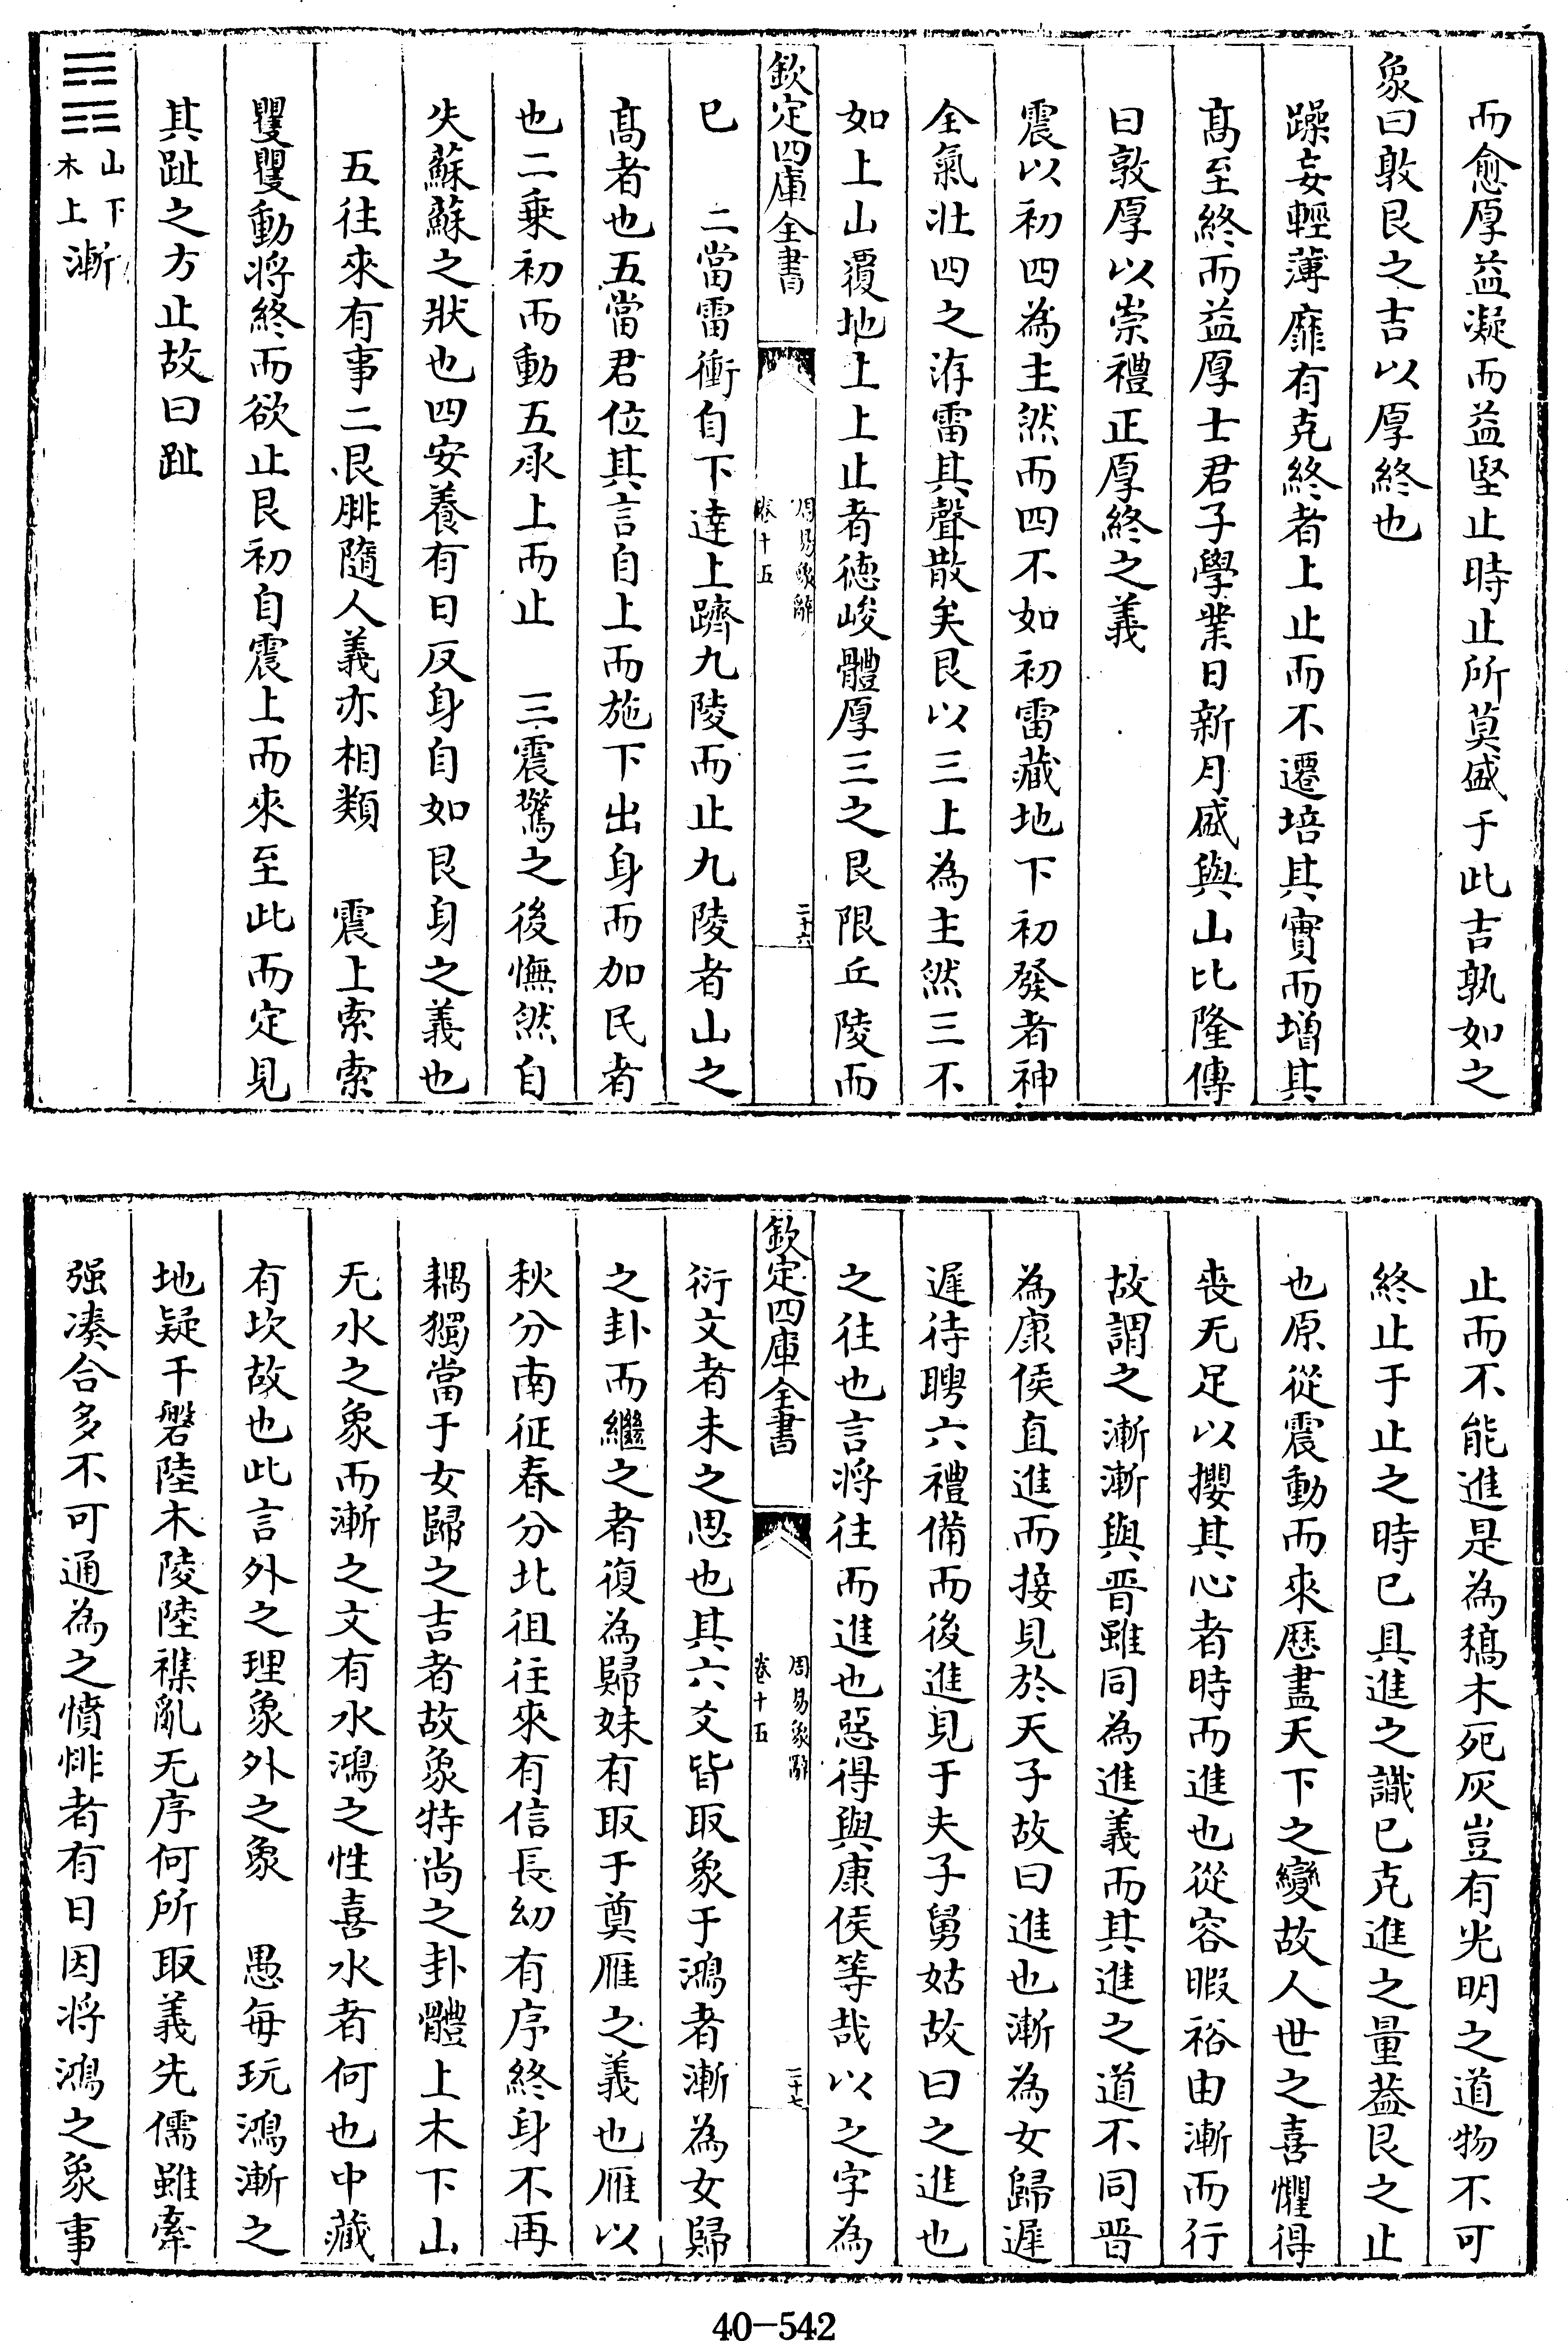 而愈厚益凝而益堅止時止所莫盛于此吉孰如之
象曰敦艮之吉以厚終也
躁妄輕薄靡有克終者上止而不遷培其實而增其
髙至終而益厚士君子學業日新月盛與山比隆傳
曰敦厚以崇禮正厚終之義
震以初四為主然而四不如初雷藏地下初發者神
全氣壯四之洊雷其聲散矣艮以三上為主然三不
如上山覆地上上止者徳峻體厚三之艮限丘陵而
欽定四庫全書
周易象辭
卷十五
二十六
已　二當雷衝自下逹上躋九陵而止九陵者山之
髙者也五當君位其言自上而施下出身而加民者
也二乗初而動五承上而止　三震驚之後憮然自
失蘇蘇之狀也四安養有日反身自如艮身之義也
五往來有事二艮腓隨人義亦相類　震上索索
矍矍動將終而欲止艮初自震上而來至此而定見
其趾之方止故曰趾
䷴山下木上漸
止而不能進是為稿木死灰豈有光明之道物不可
終止于止之時已具進之識已克進之量葢艮之止
也原從震動而來歴盡天下之變故人世之喜懼得
喪无足以攖其心者時而進也從容暇裕由漸而行
故謂之漸漸與晋雖同為進義而其進之道不同晋
為康侯直進而接見於天子故曰進也漸為女歸遲
遲待聘六禮備而後進見于夫子舅姑故曰之進也
之往也言將往而進也惡得與康侯等哉以之字為
欽定四庫全書
周易象辭
卷十五
二十七
衍文者未之思也其六爻皆取象于鴻者漸為女歸
之卦而繼之者復為歸妹有取于奠雁之義也雁以
秋分南征春分北徂往來有信長幼有序終身不再
耦獨當于女歸之吉者故象特尚之卦體上木下山
无水之象而漸之文有水鴻之性喜水者何也中藏
有坎故也此言外之理象外之象　愚每玩鴻漸之
地疑干磐陸木陵陸襍亂无序何所取義先儒雖牽
强凑合多不可通為之憤悱者有日因將鴻之象事
40-542